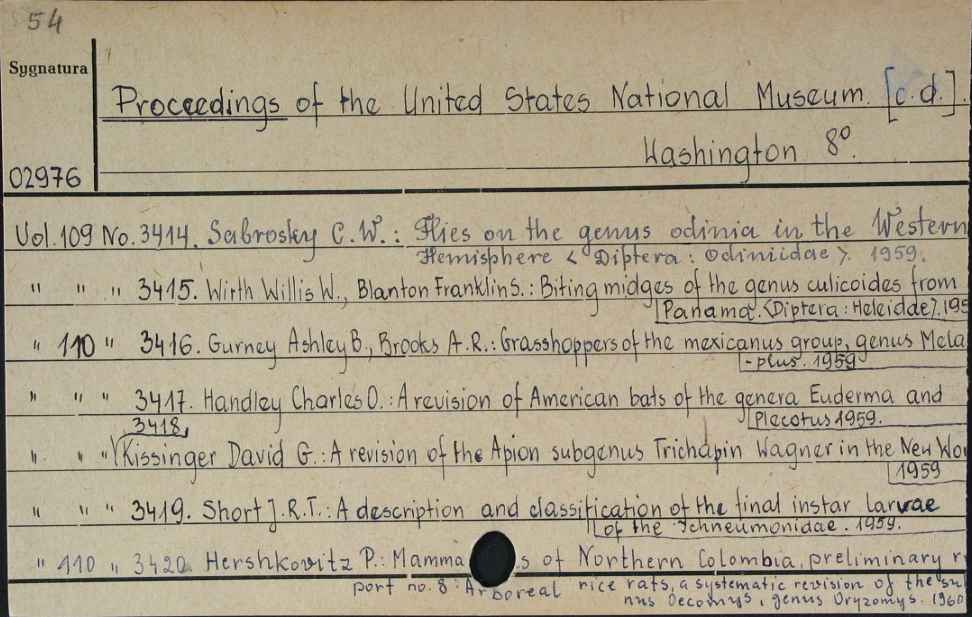 54
Sygnatura
Proceedings of the United States National Museum. [c.d.].
Washington 8º.
02976
Vol. 109 No. 3414. Sabrosky C.W.: Flies on the genus odinia in the Western
Hemisphere < Diptera: Odiniidae >. 1959.
" " " 3415. Wirth Willis W., Blanton Franklin S.: Biting midges of the genus culicoides from
Panama. <Diptera: Heleidae>. 195
" 110 " 3416. Gurney Ashley B., Brooks A.R.: Grasshoppers of the mexicanus group, genus Mela
-plus. 1959
" " " 3417. Handley Charles O.: A revision of American bats of the genera Euderma and
Plecotus 1959.
3418,
" " " Kissinger David G.: A revision of the Apion subgenus Trichapin Wagner in the New Wo
1959
" " " 3419. Short J.R.T.: A description and classification of the final instar larvae
of the Ichneumonidae. 1959.
" 110 " 3420. Hershkovitz P.: Mamma s of Northern Colombia, preliminary r
port no. 8: Arboreal rice rats, a systematic revision of the su
nus Oecomys, genus Oryzomys. 1960